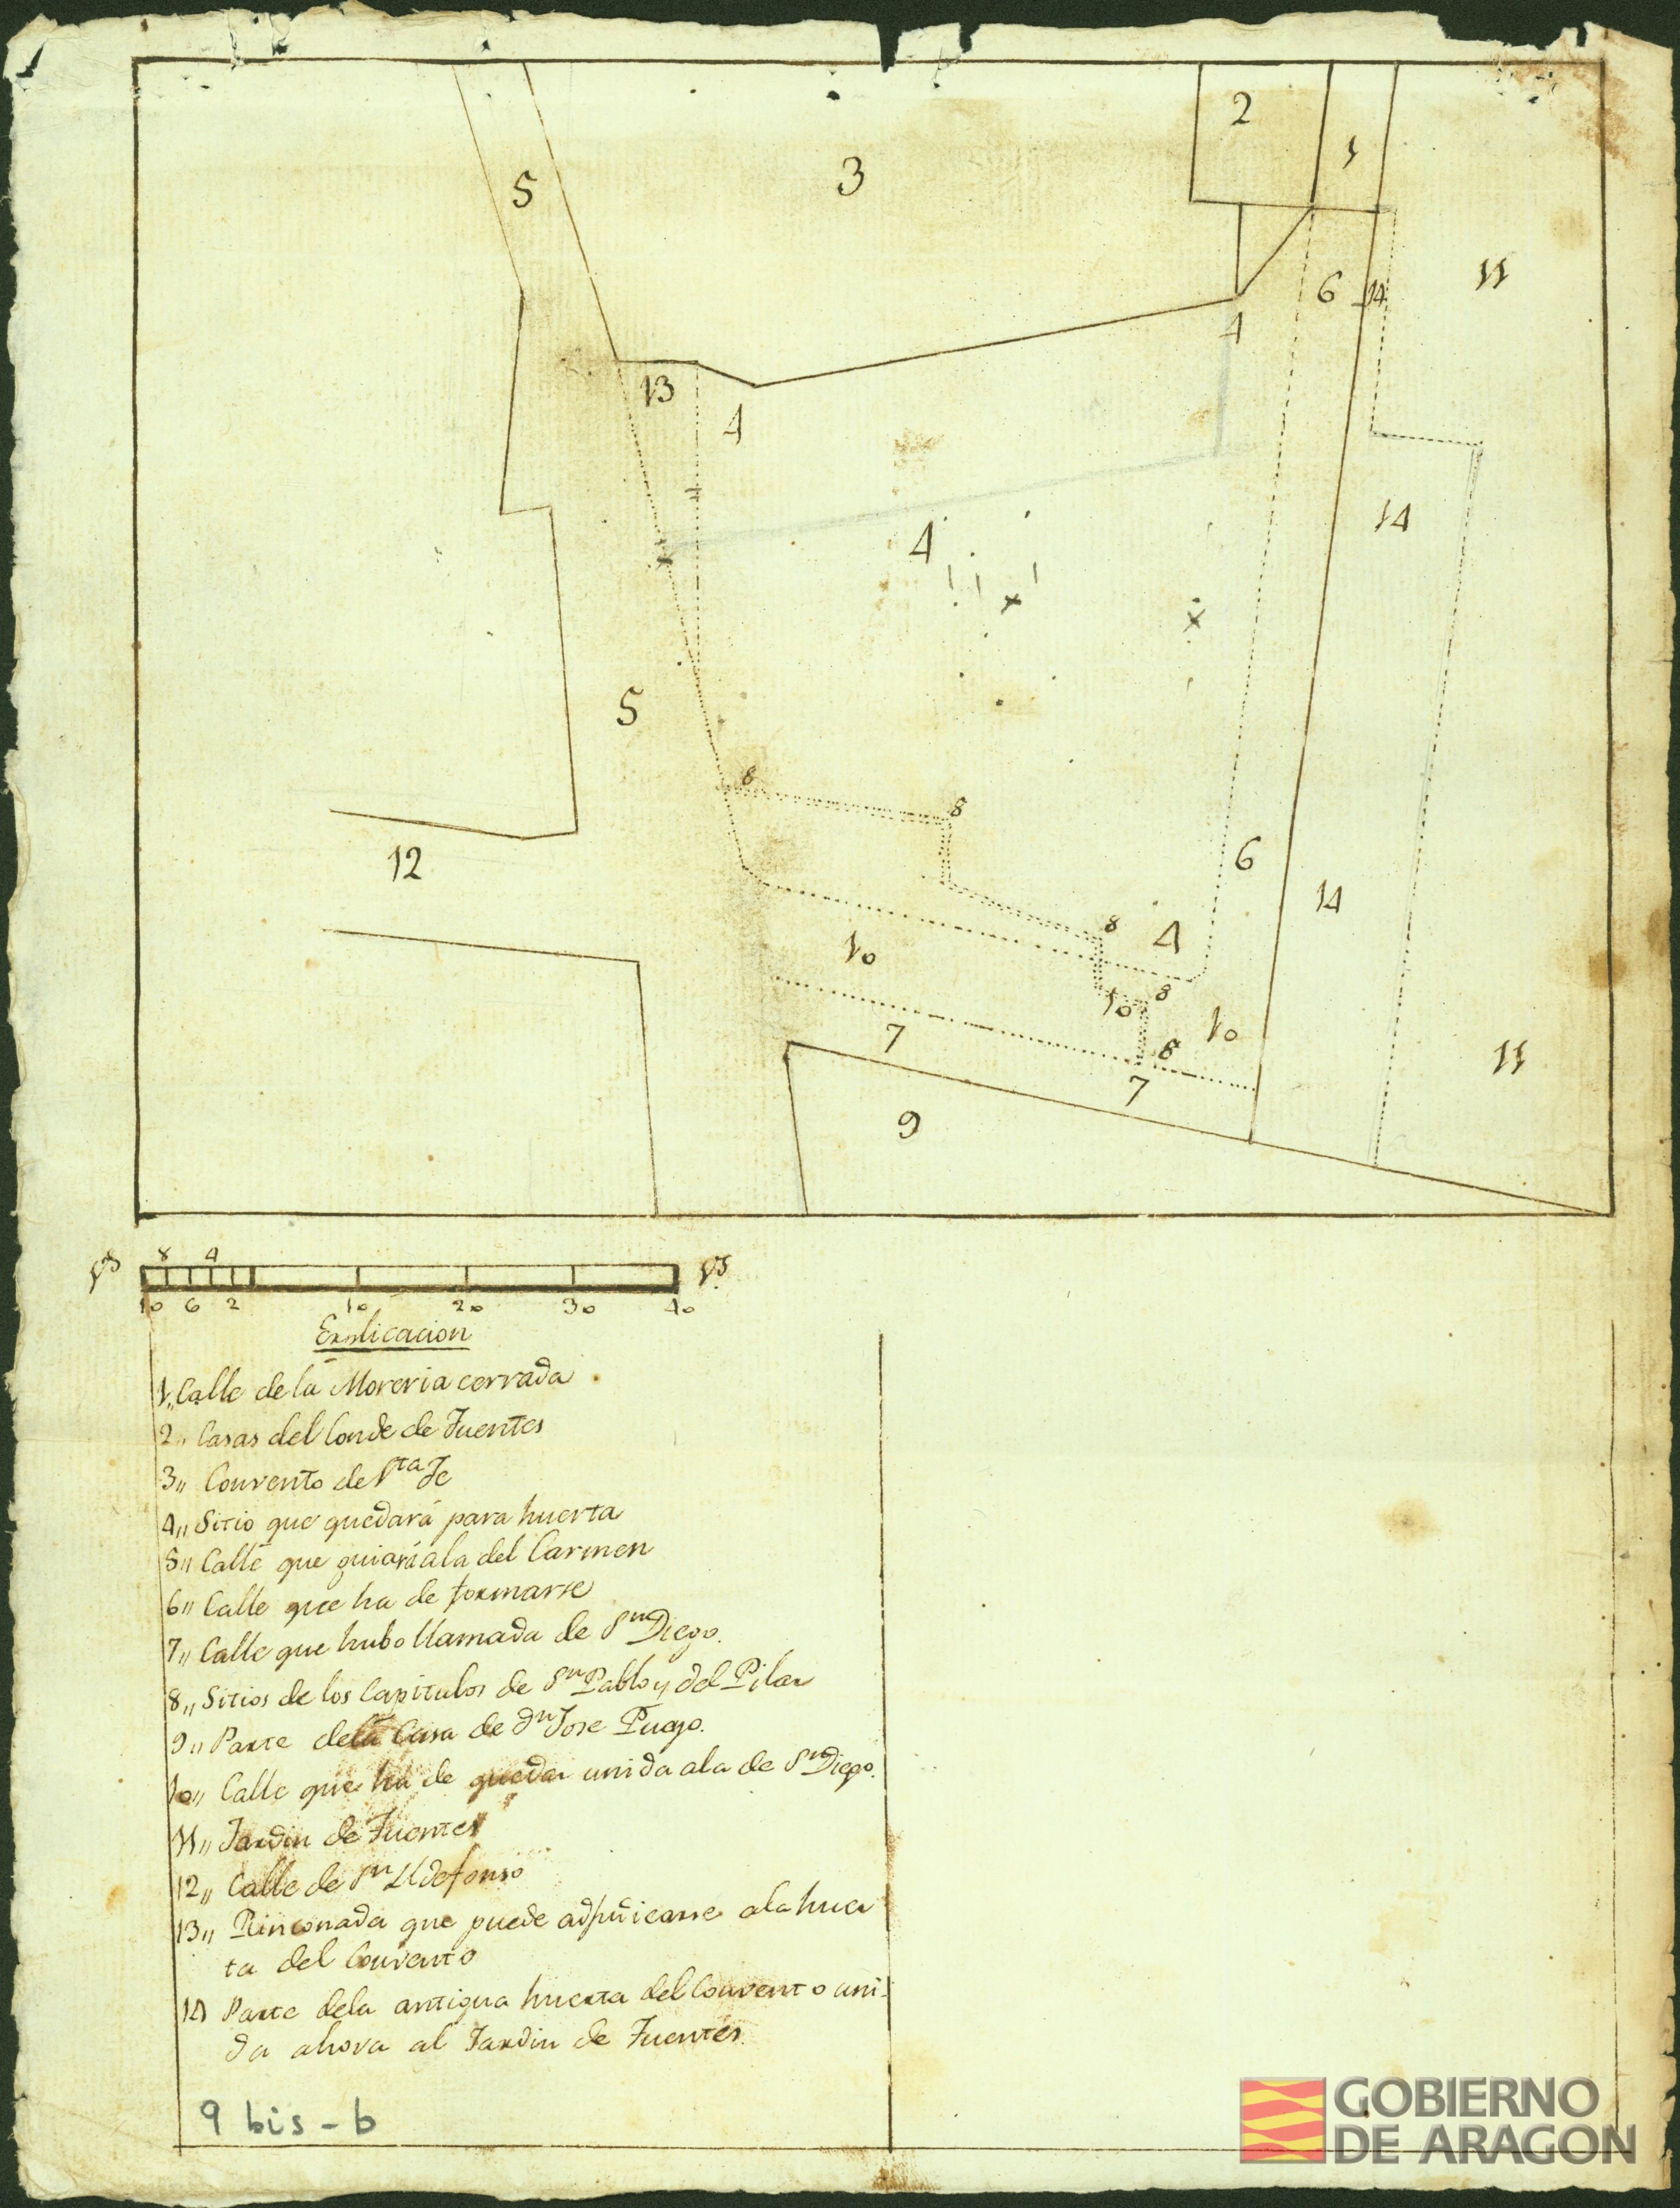 2
1
5
3
11
6
14
4
13
4
14
4
5
8
8
6
12
14
8
4
10
8
10
10
7
8
11
7
9
8 4
10 6 2 10 20 30 40
Explicacion
1,, Calle de la Moreria cerrada
2,, Casas del Conde de Fuentes
3,, Convento de Sta Fe
4,, Sitio que quedará para huerta
5,, Calle que guiará ala del Carmen
6,, Calle que ha de formarse
7,, Calle que hubo llamada de Sn Diego.
8,, Sitios de los Capitulos de Sn Pablo y del Pilar
9,, Parte dela Casa de dn Jose Pueyo.
10,, Calle que ha de quedar unida ala de Sn Diego.
11,, Jardin de Fuentes
12,, Calle de Sn Ildefonso
13,, Rinconada que puede adjudicarse ala huer
ta del Convento
14 Parte dela antigua huerta del Convento uni-
da ahora al Jardin de Fuentes.
9 bis - b
GOBIERNO
DE ARAGON